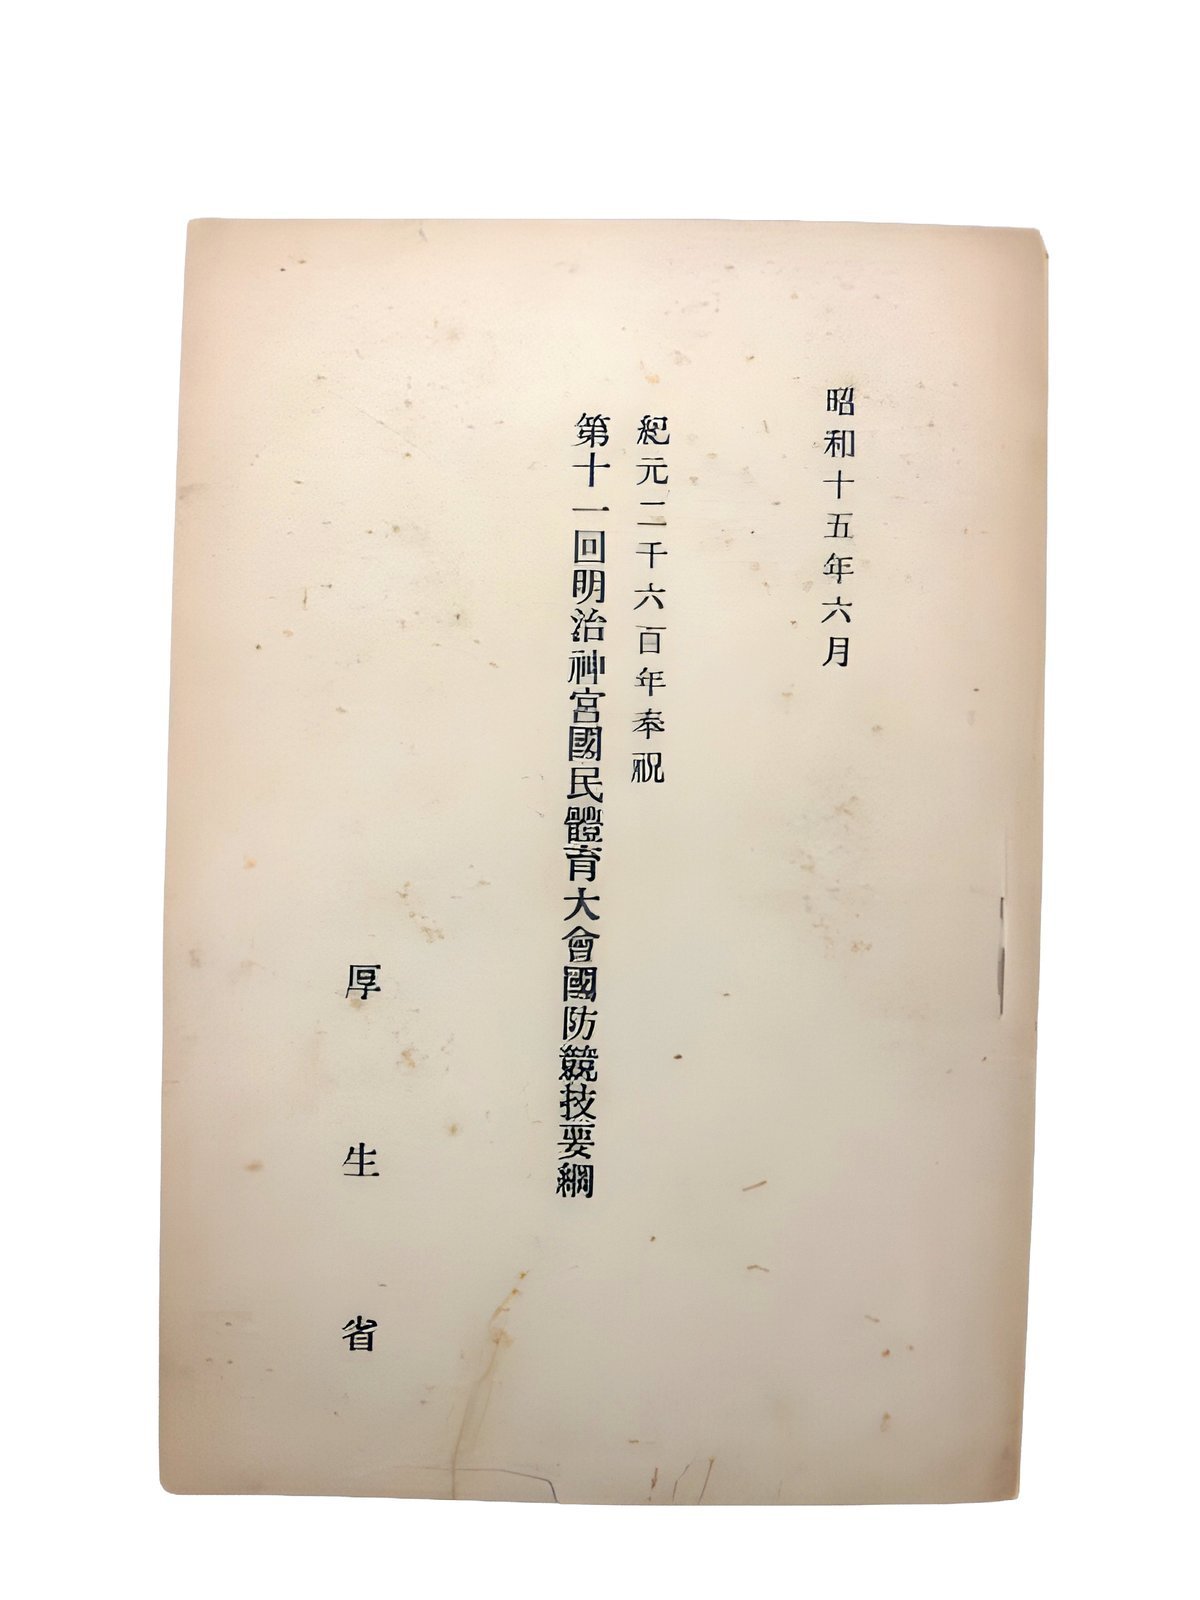 昭和十五年六月
紀元二千六百年奉祝
第十一回明治神宮國民體育大會國防競技要綱
厚生省